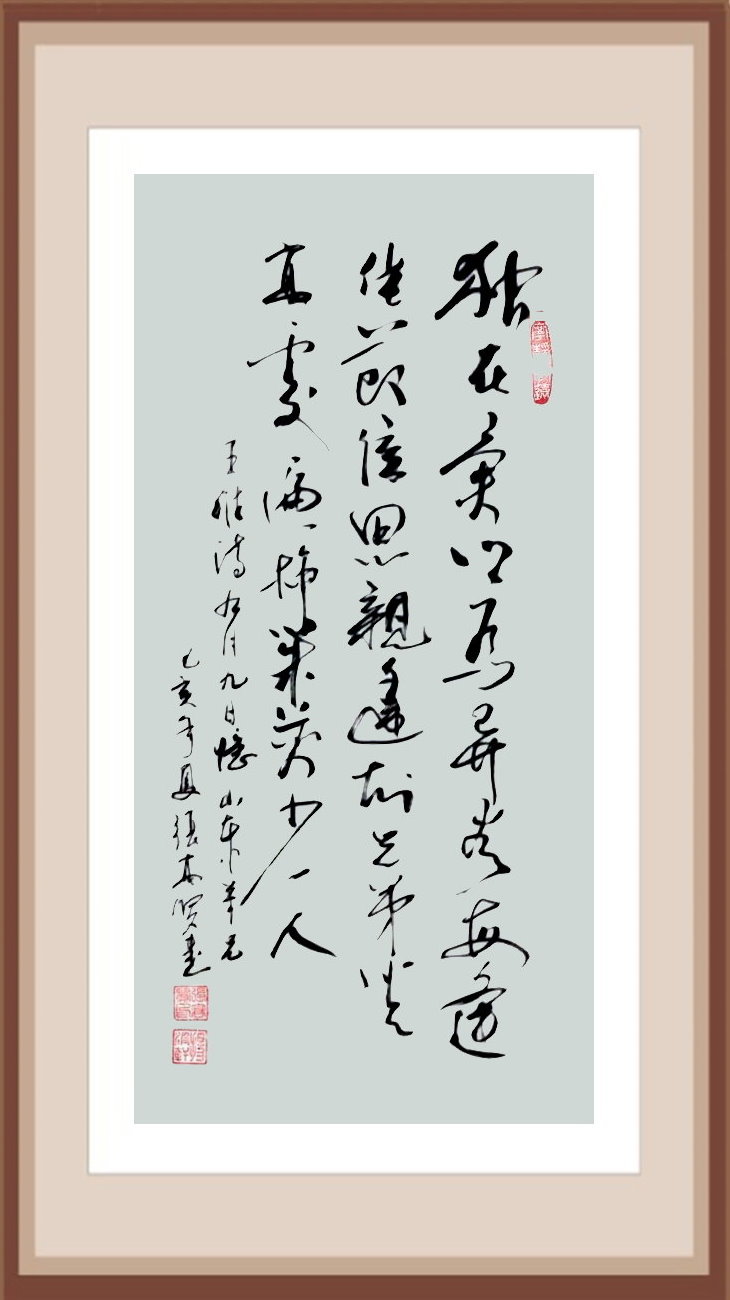 獨在異鄉為異客每逢
佳節倍思親遙知兄弟登
高處遍插茱萸少一人
王維詩九月九日憶山東弟兄
己亥年夏張高賢書